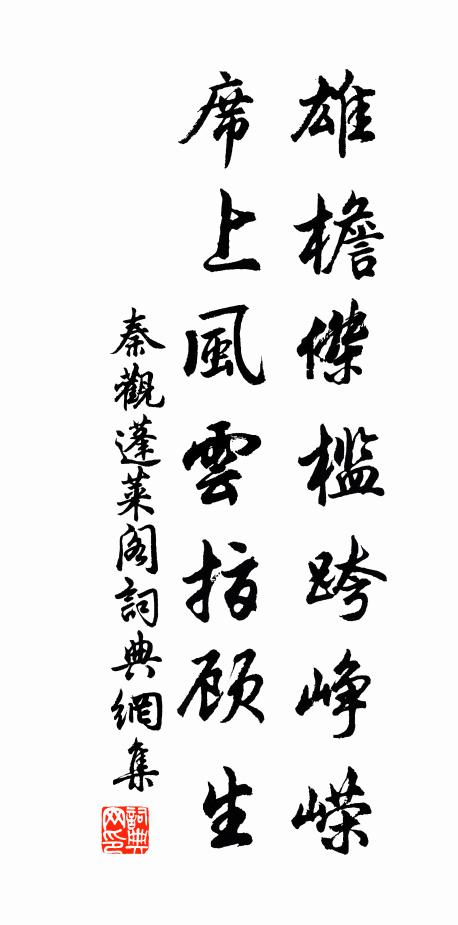 雄檐傑檻跨峥嶸
席上風雲指顾生
秦觀蓬萊阁詞典網集
詞典网印